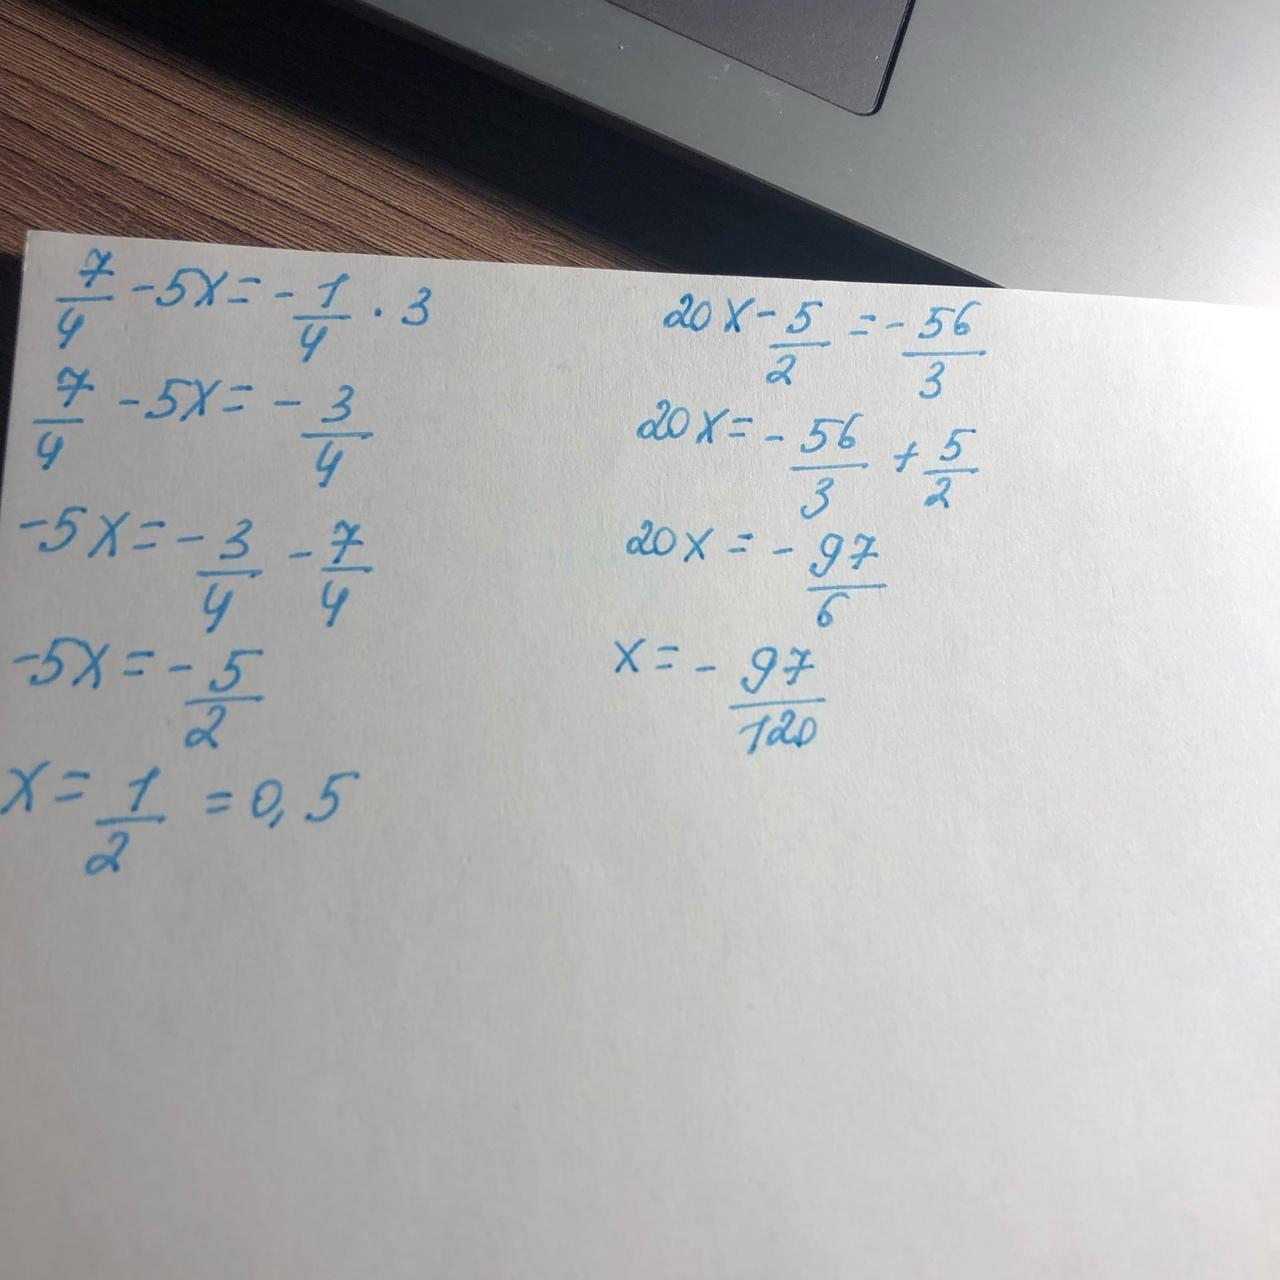 7/4 - 5x = - 1/4 · 3
7/4 - 5x = - 3/4
-5x = - 3/4 - 7/4
-5x = - 5/2
x = 1/2 = 0,5
20x - 5/2 = - 56/3
20x = - 56/3 + 5/2
20x = - 97/6
x = - 97/120